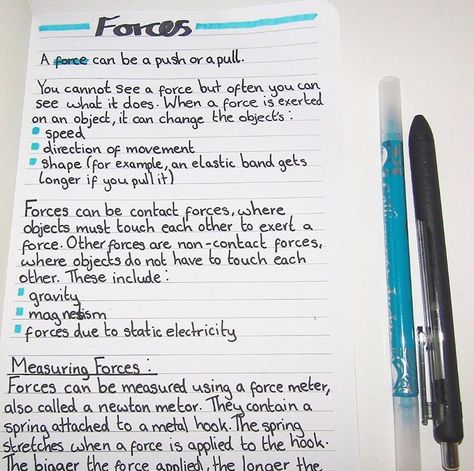 Forces
A force can be a push or a pull.
You cannot see a force but often you can
see what it does. When a force is exerted
on an object, it can change the object's:
speed
direction of movement
shape (for example, an elastic band gets
longer if you pull it)
Forces can be contact forces, where
objects must touch each other to exert a
force. Other forces are non-contact forces,
where objects do not have to touch each
other. These include:
gravity
magnetism
forces due to static electricity
Measuring Forces:
Forces can be measured using a force meter,
also called a newton metor. They contain a
spring attached to a metal hook. The spring
stretches when a force is applied to the hook.
The bigger the force applied, the longer the